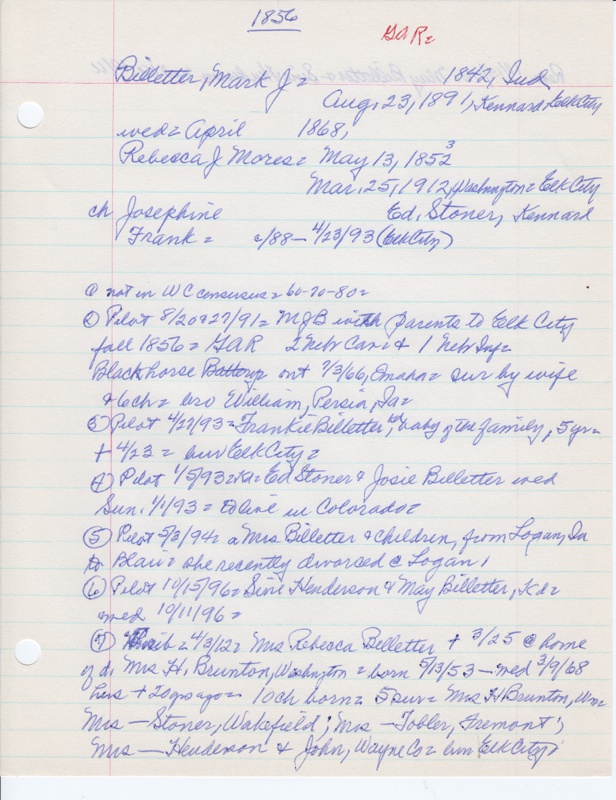 1856
GAR=
Billetter, Mark J= 1842, Ind
Aug, 23, 1891, Kennard, Elk City
wed= April 1868,
Rebecca J Mores= May 13, 1852 3
Mar. 25, 1912, Washington= Elk City
ch Josephine Ed. Stoner, Kennard
Frank= c/88- 4/23/93 (Elk City)
① not in WC censuses= 60-70-80=
② Pilot 8/20&27/91= MJB with parents to Elk City
fall 1856= GAR 2 Nebr Cav & 1 Nebr Inf=
Blackhorse Battery out 7/3/66, Omaha= sur by wife
& 6 ch= bro William, Persia, Ia=
③ Pilot 4/27/93= Frankie Billetter, baby of the family, 5 yr=
+ 4/23= bur Elk City=
④ Pilot 1/5/93= Ed Stoner & Josie Billetter wed
Sun. 1/1/93= to live in Colorado=
⑤ Pilot 5/3/94= a Mrs Billetter & children, from Logan, Ia
to Blair= she recently divorced @ Logan,
⑥ Pilot 10/15/96= Sine Henderson & May Billetter, Kd=
wed 10/11/96=
⑦ Trib= 4/3/12= Mrs Rebecca Billetter + 3/25 @ home
of d. Mrs H. Brunton, Washington= born 5/13/53- wed 3/9/68
hus + 20 yrs ago= 10 ch born= 5 sur= Mrs H Brunton, Wn=
Mrs - Stoner, Wakefield; Mrs - Tobler, Fremont;
Mrs - Henderson & John, Wayne Co= bur Elk City,